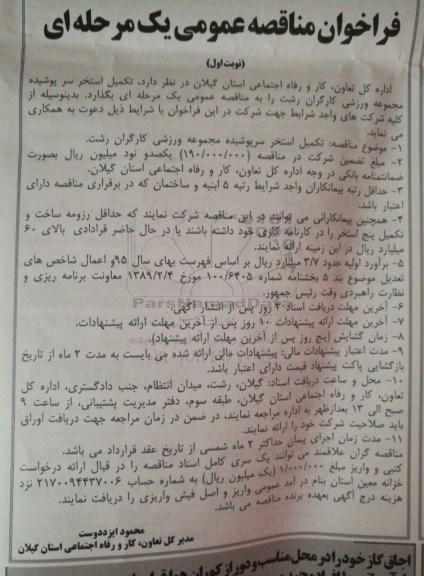 فراخوان مناقصه عمومی یک مرحله ای
(نوبت اول)
اداره کل تعاون، کار و رفاه اجتماعی استان گیلان در نظر دارد، تکمیل استخر سر پوشیده
مجموعه ورزشی کارگران رشت را به مناقصه عمومی یک مرحله ای بگذارد. بدینوسیله از
کلیه شرکت های واجد شرایط جهت شرکت در این فراخوان با شرایط ذیل دعوت به همکاری
می نماید.
۱- موضوع مناقصه: تکمیل استخر سرپوشیده مجموعه ورزشی کارگران رشت.
۲- مبلغ تضمین شرکت در مناقصه (۱۹۰/۰۰۰/۰۰۰) یکصدو نود میلیون ریال بصورت
ضمانتنامه بانکی در وجه اداره کل تعاون، کار و رفاه اجتماعی استان گیلان.
۳- حداقل رتبه پیمانکاران واجد شرایط رتبه ۵ ابنیه و ساختمان که در برقراری مناقصه دارای
اعتبار باشد.
۴- همچنین پیمانکارانی می توانند در این مناقصه شرکت نمایند که حداقل رزومه ساخت و
تکمیل پنج استخر را در کارنامه کاری خود داشته باشند یا در حال حاضر قراردادی بالای ۶۰
میلیارد ریال در این زمینه ارائه نمایند.
۵- برآورد اولیه حدود ۳/۷ میلیارد ریال بر اساس فهرست بهای سال ۹۵ و اعمال شاخص های
تعدیل موضوع بند ۵ بخشنامه شماره ۱۰۰/۶۴۰۵ مورخ ۱۳۸۹/۲/۴ معاونت برنامه ریزی و
نظارت راهبردی وقت رئیس جمهور.
۶- آخرین مهلت دریافت اسناد ۳ روز پس از انتشار آگهی.
۷- آخرین مهلت ارائه پیشنهادات ۱۰ روز پس از آخرین مهلت ارائه پیشنهادات.
۸- زمان گشایش (پنج روز پس از آخرین مهلت ارائه پیشنهاد).
۹- مدت اعتبار پیشنهادات مالی: پیشنهادات مالی ارائه شده می بایست به مدت ۲ ماه از تاریخ
بازگشایی پاکت پیشنهاد قیمت دارای اعتبار باشد.
۱۰- محل و ساعت دریافت اسناد: گیلان، رشت، میدان انتظام، جنب دادگستری، اداره کل
تعاون، کار و رفاه اجتماعی استان گیلان، طبقه سوم، دفتر مدیریت پشتیبانی، از ساعت ۹
صبح الی ۱۳ بعدازظهر به اداره مراجعه نمایند، در ضمن در زمان مراجعه جهت دریافت اوراق
باید صلاحیت شرکت خود را ارائه نمایند.
۱۱- مدت زمان اجرای پیمان حداکثر ۲ ماه شمسی از تاریخ عقد قرارداد می باشد.
مناقصه گران علاقمند می توانند یک سری کامل اسناد مناقصه را در قبال ارائه درخواست
کتبی و واریز مبلغ ۱/۰۰۰/۰۰۰ (یک میلیون ریال) به شماره حساب ۲۱۷۰۰۹۴۴۳۷۰۰۶ نزد
خزانه معین استان بنام در آمد عمومی واریز و اصل فیش واریزی را دریافت نمایند.
هزینه درج آگهی بعهده برنده مناقصه می باشد.
محمود ایزددوست
مدیر کل تعاون، کار و رفاه اجتماعی استان گیلان
اجاق گاز خود را در محل مناسب و دور از کوران هوا